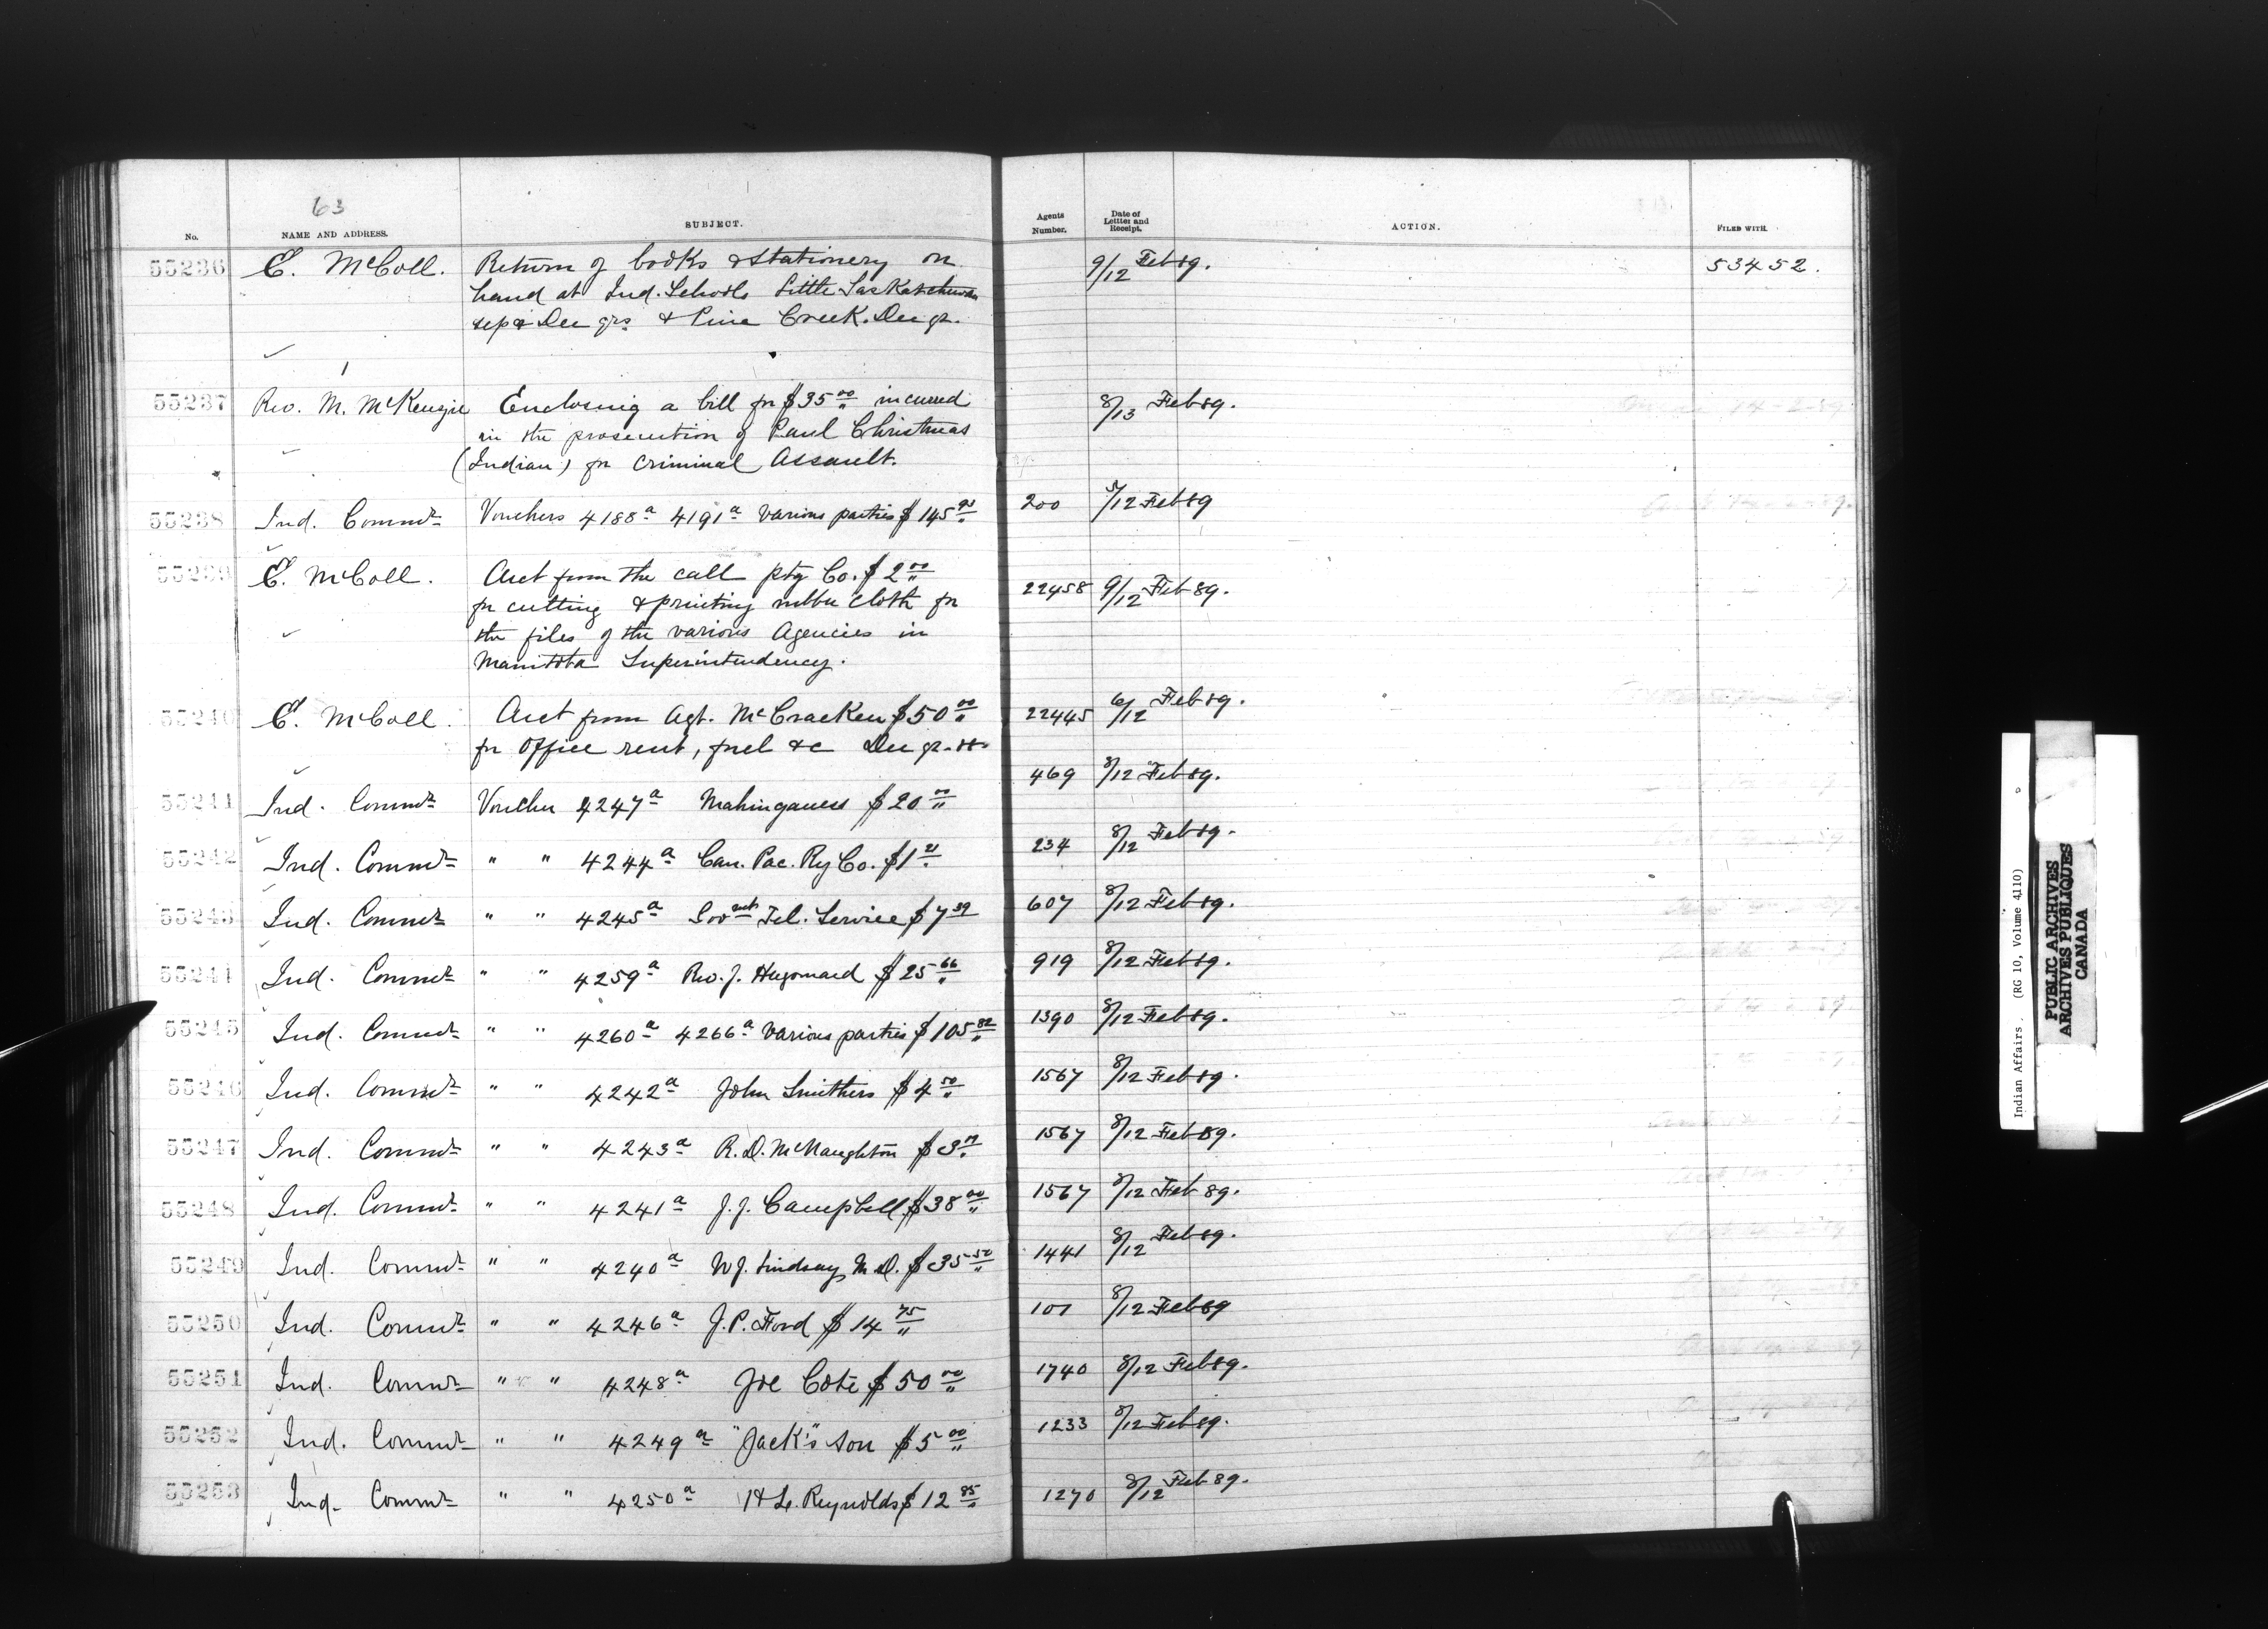 63
No. NAME AND ADDRESS. SUBJECT. Agents Number. Date of Lettter and Receipt. ACTION. FILED WITH.
55236 E. McColl. Return of books & Stationery on 9/12 Feb 89. 53452.
hand at Ind. Schools Little Saskatchewan
Sep & Dec qrs & Pine Creek. Dec qr.
55237 Rev. M. McKenzie Enclosing a bill for $35 00 incurred 8/13 Feb 89.
in the prosecution of Paul Christmas
(Indian) for Criminal Assault.
55238 Ind. Commr Vouchers 4188a 4191a Various parties $145 200 5/12 Feb 89
55239 E. McColl. Acct from the call ptg Co. $2 00 22458 9/12 Feb 89.
for cutting & printing rubber cloth for
the files of the various Agencies in
Manitoba Superintendency.
55240 E. McColl. Acct from Agt. McCracken $50 00 22445 6/12 Feb 89.
for Office rent, fuel &c Dec qr. 88
55241 Ind. Commr Voucher 4247a $20 00 469 8/12 Feb 89.
55242 Ind. Commr " " 4244a Can. Pac. Ry Co. $1 234 8/12 Feb 89.
55243 Ind. Commr " " 4245a Govmt Tel. Service $7 39 607 8/12 Feb 89.
55244 Ind. Commr " " 4259a Rev. J. Hugonard $25 66 919 8/12 Feb 89.
55245 Ind. Commr " " 4260a 4266a Various parties $105 82 1390 8/12 Feb 89.
55246 Ind. Commr " " 4242a John Smithers $4 50 1567 8/12 Feb 89.
55247 Ind. Commr " " 4243a R. D. McNaughton $3 1567 8/12 Feb 89.
55248 Ind. Commr " " 4241a J. J. Campbell $38 00 1567 8/12 Feb 89.
55249 Ind. Commr " " 4240a W J. Lindsay M. D. $35 50 1441 8/12 Feb 89.
55250 Ind. Commr " " 4246a J. P. Ford $14 75 101 8/12 Feb 89
55251 Ind. Commr " " 4248a Joe Cote $50 00 1740 8/12 Feb 89.
55252 Ind. Commr " " 4249a "Jack's" son $5 00 1233 8/12 Feb 89.
55253 Ind. Commr " " 4250a H L. Reynolds $12 85 1270 8/12 Feb 89.
Indian Affairs. (RG 10, Volume 4110)
PUBLIC ARCHIVES
ARCHIVES PUBLIQUES
CANADA